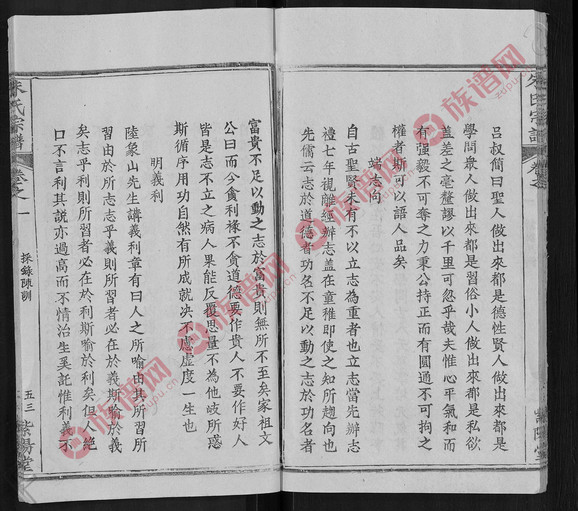 呂叔簡曰聖人做出來都是德性賢人做出來都是
學問衆人做出來都是習俗小人做出來都是私欲
蓋差之毫釐謬以千里可忽乎哉夫惟心平氣和而
有强毅不可奪之力秉公持正而有圓通不可拘之
權者斯可以語人品矣
端志向
自古聖賢未有不以立志為重者也立志當先辦志
禮七年視離經辦志蓋在童稚即使之知所趨向也
先儒云志於道德者功名不足以動之志於功名者
富貴不足以動之志於富貴則無所不至矣家祖文
公曰而今貪利祿不貪道德要作貴人不要作好人
皆是志不立之病人果能反覆思量不為他岐所惑
斯循序用功自然有所成就决不虛度一生也
明義利
陸象山先生講義利章有曰人之所喻由其所習所
習由於所志志乎義則所習者必在於義斯喻於義
矣志乎利則所習者必在於利斯喻於利矣但人絶
口不言利其說亦過高而不情治生奚詫惟利義不
朱氏宗譜
卷之一
採錄陳訓
五三
紫陽堂
族谱网
zupu.cn